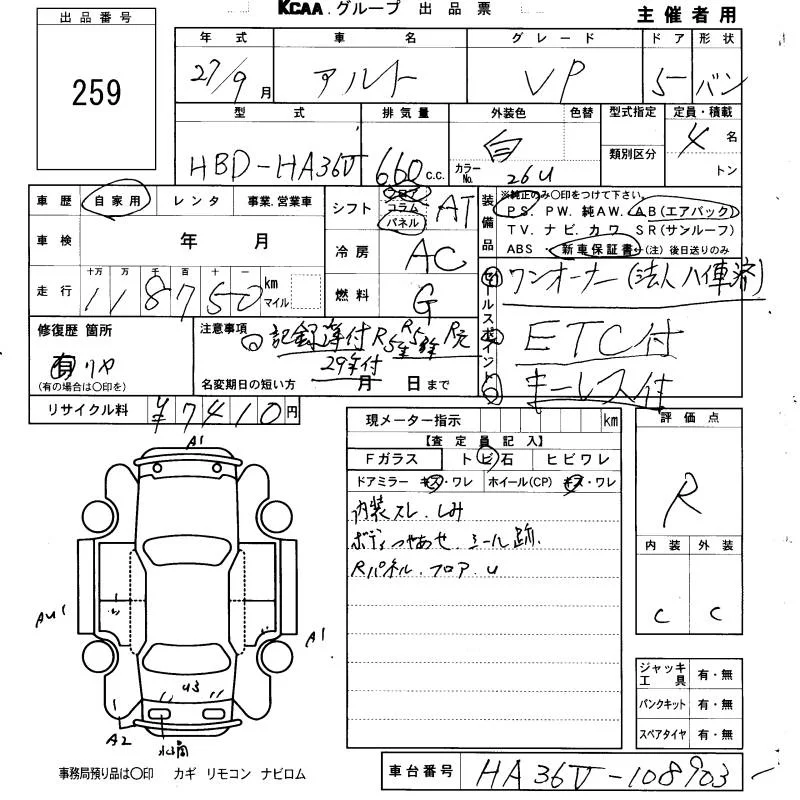 KCAA.グループ 出品票
主催者用
出品番号
259
年式 車名 グレード ドア 形状
27/9月 アルト VP 5 バン
型式 排気量 外装色 色替 型式指定 定員・積載
HBD-HA36V 660 c.c. 白 カラーNo. 26U 類別区分 4名
トン
車歴 自家用 レンタ 事業.営業車
車検 年 月
走行 十万 万 千 百 十 一
118750 km マイル
シフト フロア コラム パネル AT
冷房 AC
燃料 G
装備品 ※純正のみ〇印をつけて下さい。
PS. PW. 純AW. AB(エアバック)
TV. ナビ. カワ. SR(サンルーフ)
ABS ・ 新車保証書←(注)後日送りのみ
セールスポイント
ワンオーナー(法人ハイ車済)
ETC付
キーレス付
修復歴 箇所
有 リヤ
(有の場合は〇印を)
注意事項
記録簿付
29年付
名変期日の短い方 月 日まで
リサイクル料 ¥7410円
現メーター指示 km
【査定員記入】
Fガラス トビ石 ヒビワレ
ドアミラー キズ・ワレ ホイール(CP) キズ・ワレ
内装スレ.しみ
ボディつやあせ.シール跡.
Rパネル.フロア.U
評価点
R
内装 外装
C C
ジャッキ工具 有・無
パンクキット 有・無
スペアタイヤ 有・無
A1
AU1
A1
U3
A2
事務局預り品は〇印 カギ リモコン ナビロム
車台番号 HA36V-108903